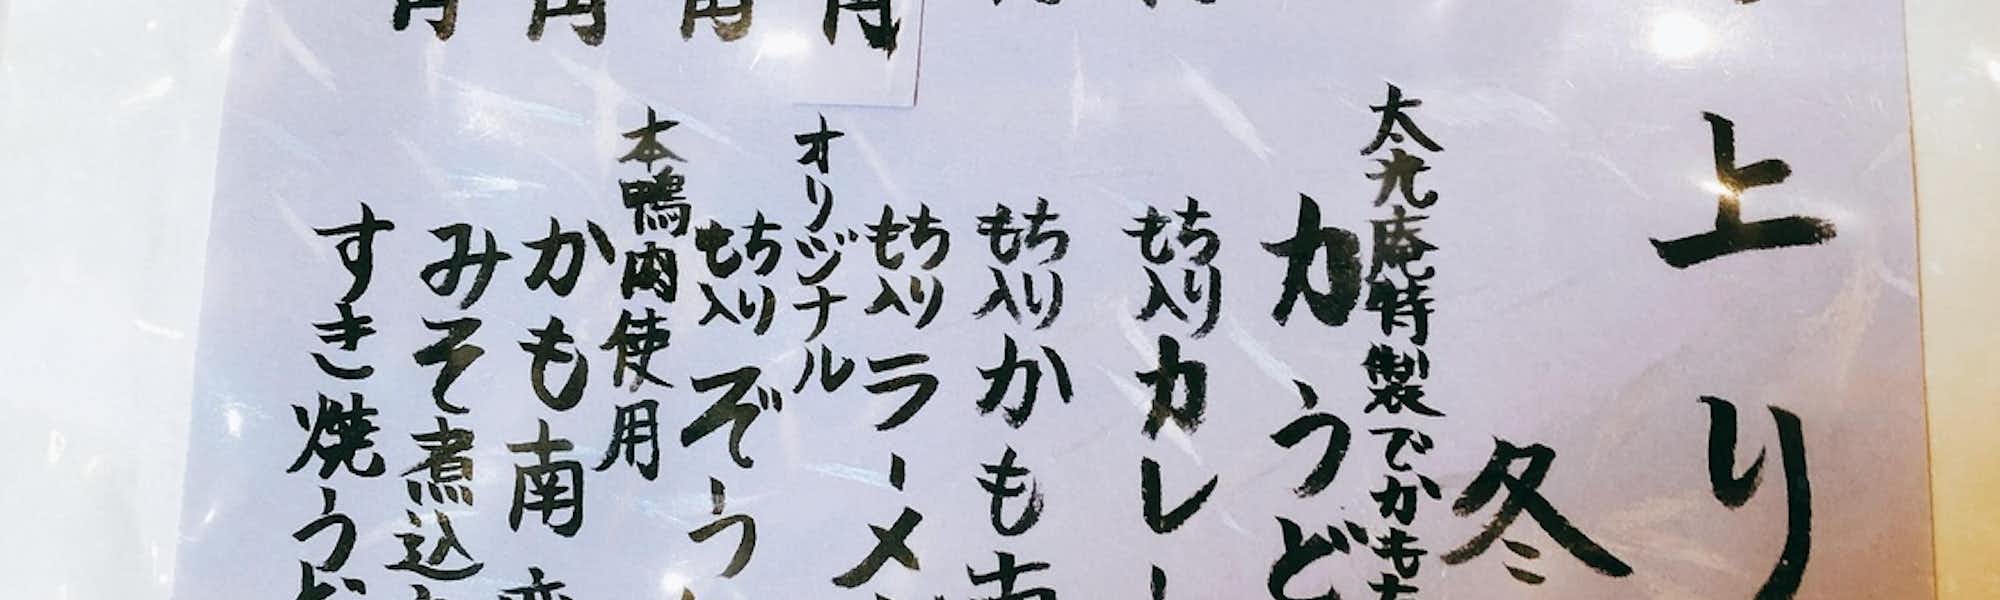 上り
冬
太光庵特製でかもち
力うど
もち入りカレー
もち入りかも南
もち入りラーメ
オリジナル
もち入りぞう
本鴨肉使用
かも南蛮
みそ煮込
すき焼うど
円
円
円
円